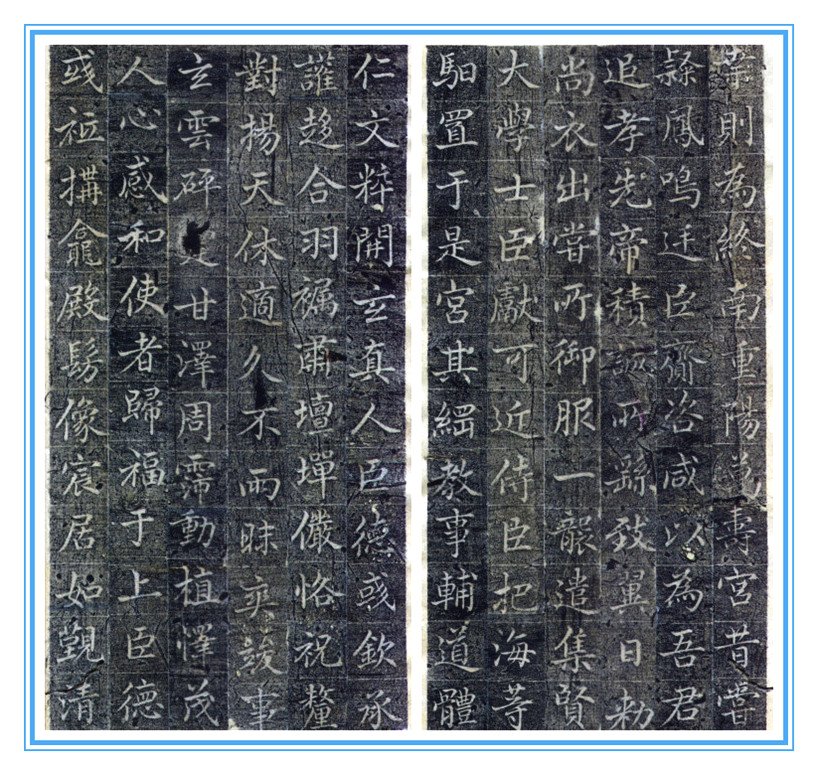 葉則為終南重陽壽宮昔嘗
繇鳳鳴迋臣齎咨咸以為吾君
追孝先帝積誠所繇致翼日勑
尚衣出嘗所御服一襲遣集賢
大學士臣獻可近侍臣把海等
馹置于是宮其綱教事輔道體
仁文粹開玄真人臣德彧欽承
讙趍合羽褵肅壇墠儼恪祝釐
對揚天休適久不雨昧爽竣事
玄雲砰甘澤周霈動植懌茂
人心感和使者歸福于上臣德
彧祗搆龕殿髣像宸居如覲清